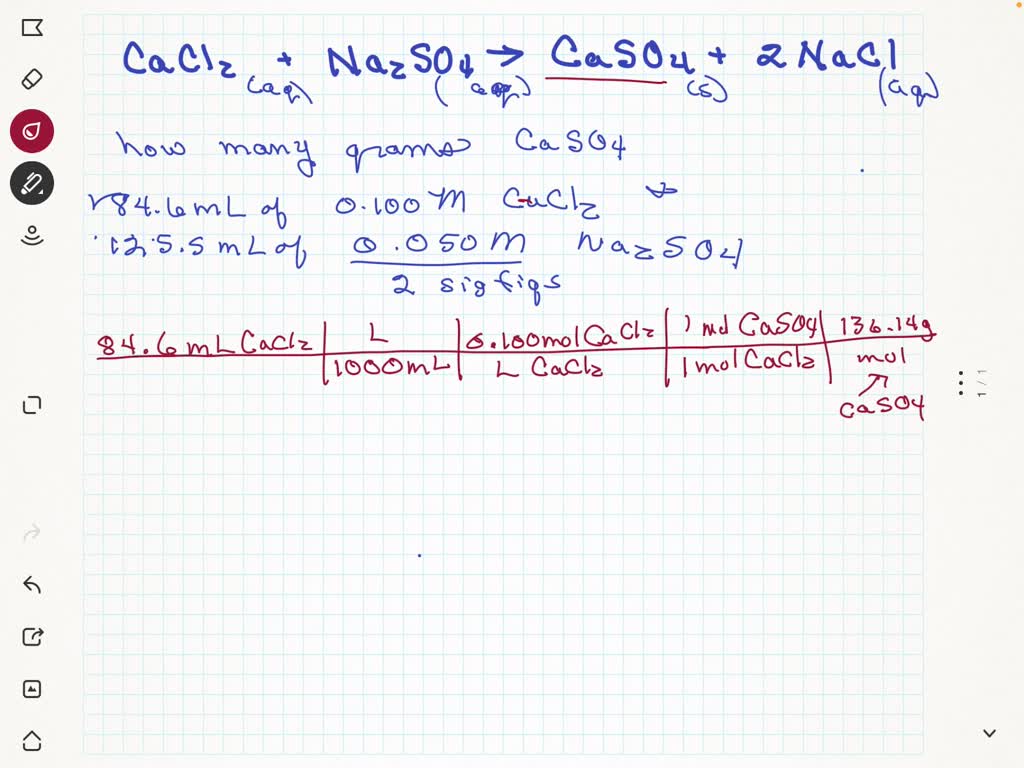 CaCl2 + Na2SO4 → CaSO4 + 2 NaCl
(aq) (aq) (s) (aq)
how many grams CaSO4
84.6 mL of 0.100 M CaCl2
125.5 mL of 0.050 M Na2SO4
2 sigfigs
84.6 mL CaCl2 | L | 0.100 mol CaCl2 | 1 mol CaSO4 | 136.14g
1000 mL | L CaCl2 | 1 mol CaCl2 | mol
CaSO4
1 / 1